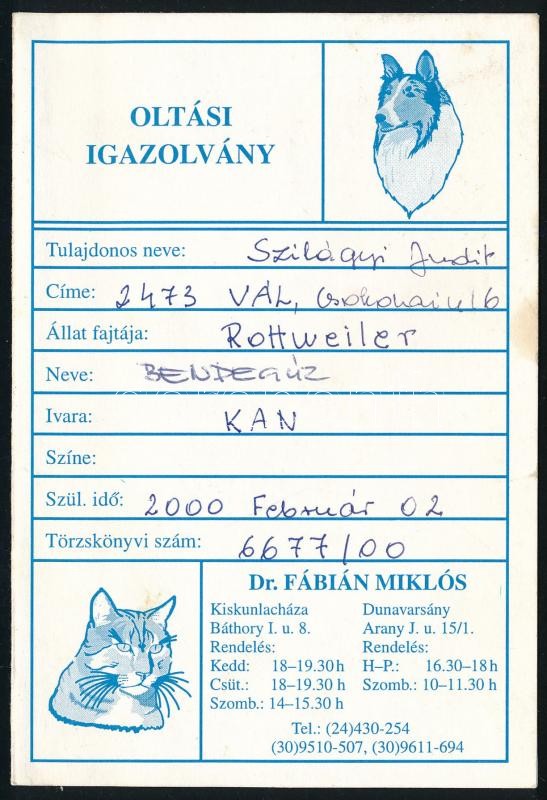 OLTÁSI
IGAZOLVÁNY
Tulajdonos neve: Szilágyi Judit
Címe: 2473 VÁL, Csokonai u 16
Állat fajtája: Rottweiler
Neve: BENDEGÚZ
Ivara: KAN
Színe:
Szül. idő: 2000 Február 02
Törzskönyvi szám: 6677/00
Dr. FÁBIÁN MIKLÓS
Kiskunlacháza
Báthory I. u. 8.
Rendelés:
Kedd: 18–19.30 h
Csüt.: 18–19.30 h
Szomb.: 14–15.30 h
Dunavarsány
Arany J. u. 15/1.
Rendelés:
H–P.: 16.30–18 h
Szomb.: 10–11.30 h
Tel.: (24)430-254
(30)9510-507, (30)9611-694